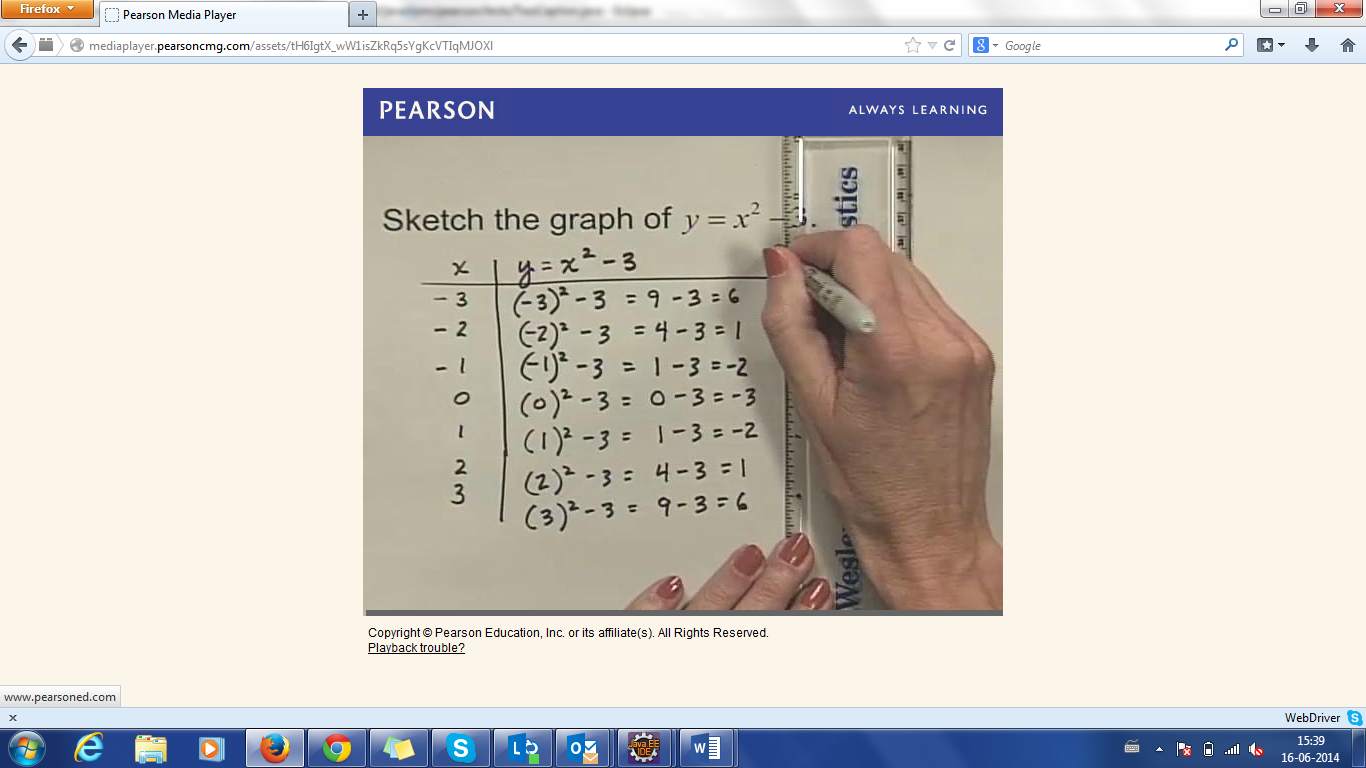 Firefox
Pearson Media Player
mediaplayer.pearsoncmg.com/assets/tH6IgtX_wW1isZkRq5sYgKcVTIqMJOXI
Google
PEARSON
ALWAYS LEARNING
Sketch the graph of y = x² – 3.
x y = x² - 3
-3 (-3)² - 3 = 9 - 3 = 6
-2 (-2)² - 3 = 4 - 3 = 1
-1 (-1)² - 3 = 1 - 3 = -2
0 (0)² - 3 = 0 - 3 = -3
1 (1)² - 3 = 1 - 3 = -2
2 (2)² - 3 = 4 - 3 = 1
3 (3)² - 3 = 9 - 3 = 6
stics
Wesle
Copyright © Pearson Education, Inc. or its affiliate(s). All Rights Reserved.
Playback trouble?
www.pearsoned.com
x WebDriver
Java EE
IDE
15:39
16-06-2014